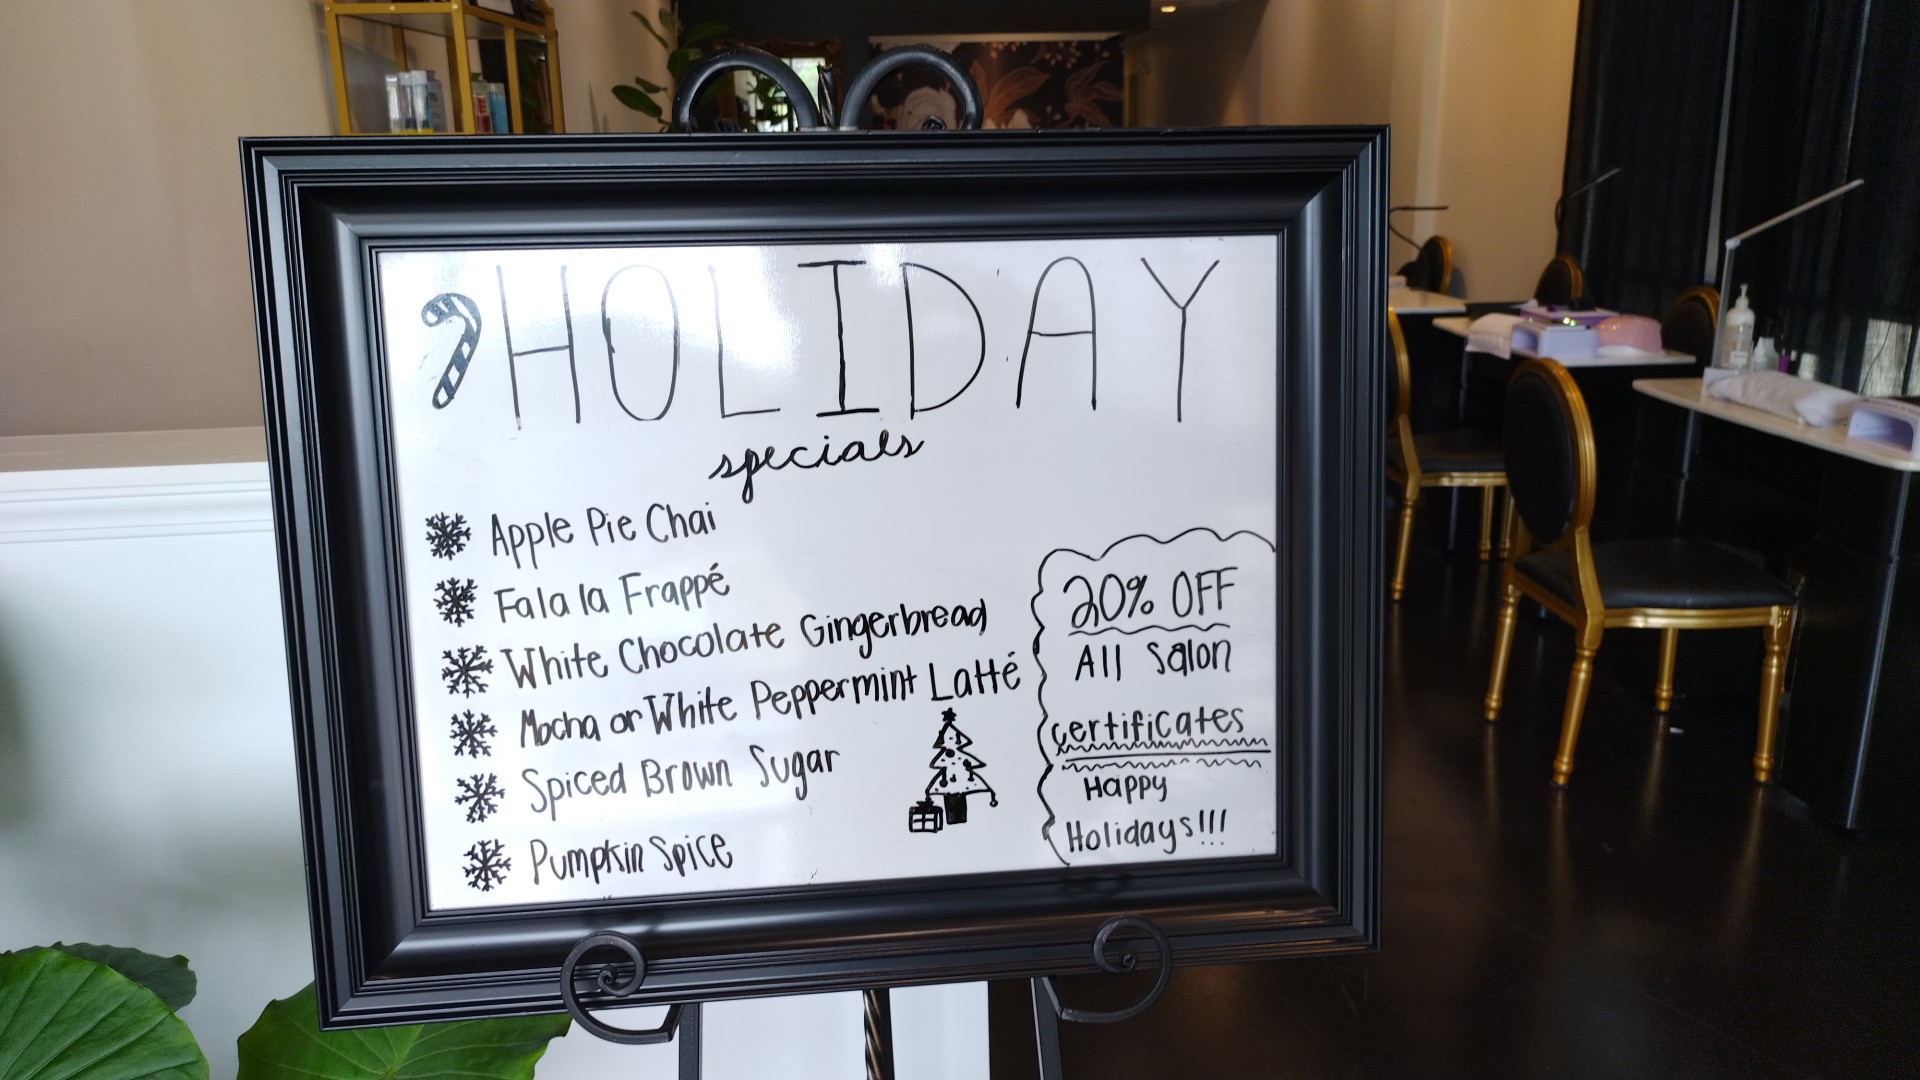 HOLIDAY
specials
Apple Pie Chai
Falala Frappé
White Chocolate Gingerbread
Mocha or White Peppermint Latté
Spiced Brown Sugar
Pumpkin Spice
20% OFF
All Salon
certificates
Happy
Holidays!!!